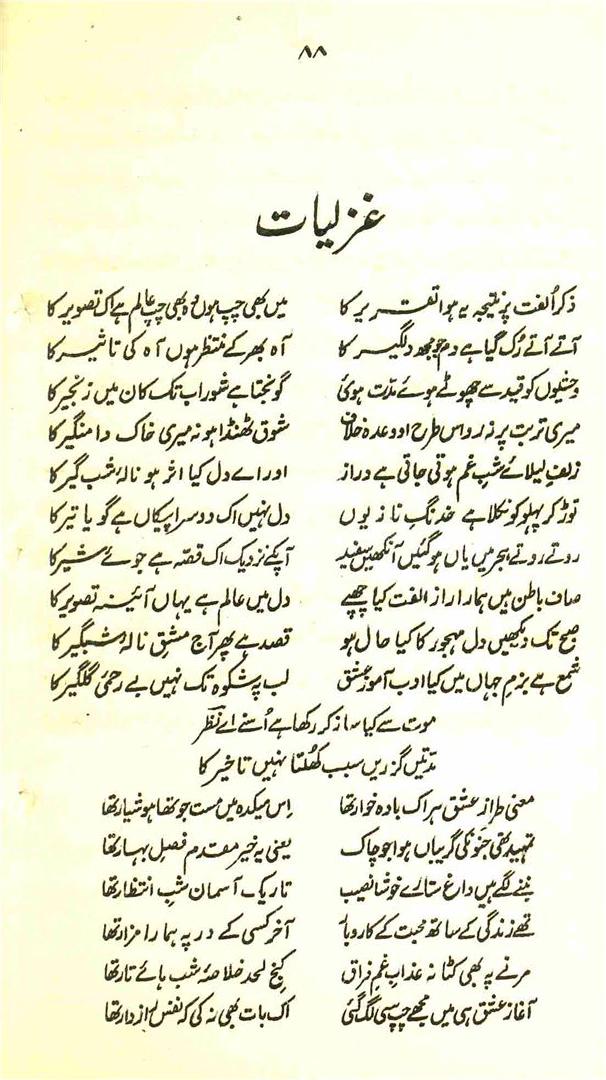 ۸۸
غزلیات
ذکر الفت پر نتیجہ یہ ہوا تقریر کا میں بھی چپ ہوں وہ بھی چپ عالم ہے اک تصویر کا
آتے آتے رک گیا ہے دم جو مجھ دلگیر کا آہ بھر کے منتظر ہوں آہ کی تاثیر کا
وحشیوں کو قید سے چھوٹے ہوئے مدت ہوئی گونجتا ہے شور اب تک کان میں زنجیر کا
میری تربت پر نہ رو اس طرح او وعدہ خلاف شوق ٹھنڈا ہو نہ میری خاک دامنگیر کا
زلفِ لیلائے شبِ غم ہوتی جاتی ہے دراز اور اے دل کیا اثر ہو نالۂ شب گیر کا
توڑ کر پہلو کو نکلا ہے خدنگِ ناز یوں دل نہیں اک دوسرا پیکاں ہے گویا تیر کا
روتے روتے ہجر میں یاں ہو گئیں آنکھیں سفید آپکے نزدیک اک قصہ ہے جوئے شیر کا
صاف باطن ہیں ہمارا راز الفت کیا چھپے دل میں عالم ہے یہاں آئینۂ تصویر کا
صبح تک دیکھیں دل مہجور کا کیا حال ہو قصد ہے پھر آج مشقِ نالۂ شبگیر کا
شمع ہے بزمِ جہاں میں کیا ادب آموز عشق لب پہ شکوہ تک نہیں بے رحمیٔ گلگیر کا
موت سے کیا ساز کر رکھا ہے اُسنے اے نظرؔ
مدتیں گزریں سبب کھُلتا نہیں تاخیر کا
معنی طرازِ عشق ہر اک بادہ خوار تھا اِس میکدہ میں مست جو تھا ہوشیار تھا
تمہید تھی جنوں کی گریباں ہوا جو چاک یعنی یہ خیر مقدم فصلِ بہار تھا
بننے لگے ہیں داغ ستارے خوشا نصیب تاریک آسمان شبِ انتظار تھا
تھے زندگی کے ساتھ محبت کے کاروبار آخر کسی کے در پہ ہمارا مزار تھا
مرنے پہ بھی کٹا نہ عذابِ غمِ فراق کنجِ لحد خلاصۂ شب ہائے تار تھا
آغازِ عشق ہی میں مجھے چپ سی لگ گئی اک بات بھی نہ کی کہ نفس رازدار تھا